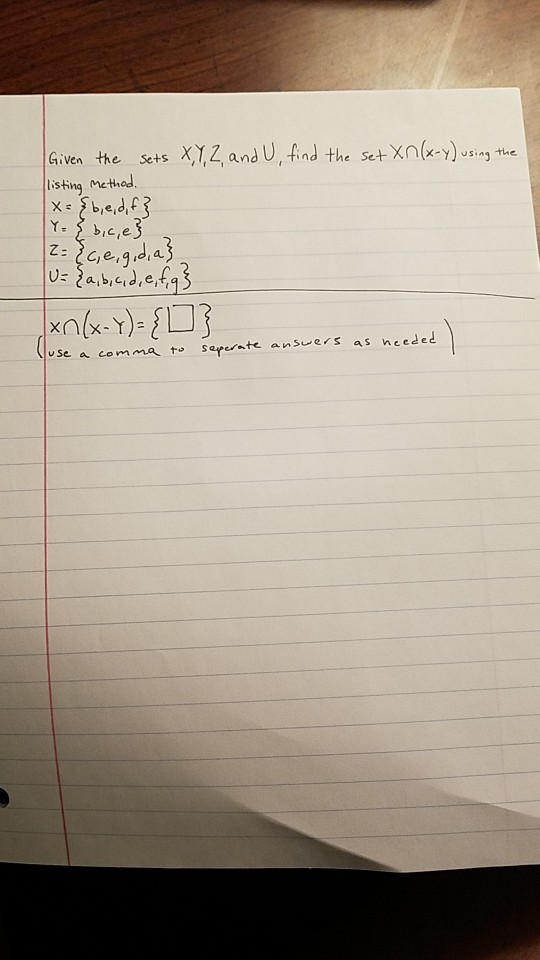 Given the sets X,Y,Z, and U, find the set X∩(x-y) using the
listing method.
X = {b,e,d,f}
Y = { b,c,e}
Z = {c,e,g,d,a}
U = {a,b,c,d,e,f,g}
x∩(x-Y)={☐}
(use a comma to seperate answers as needed)